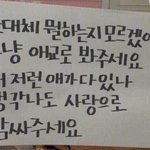 대체 뭘하는지 모르겠어
그냥 애교로 봐주세요
저런 애가 다 있나
생각나도 사랑으로
감싸주세요